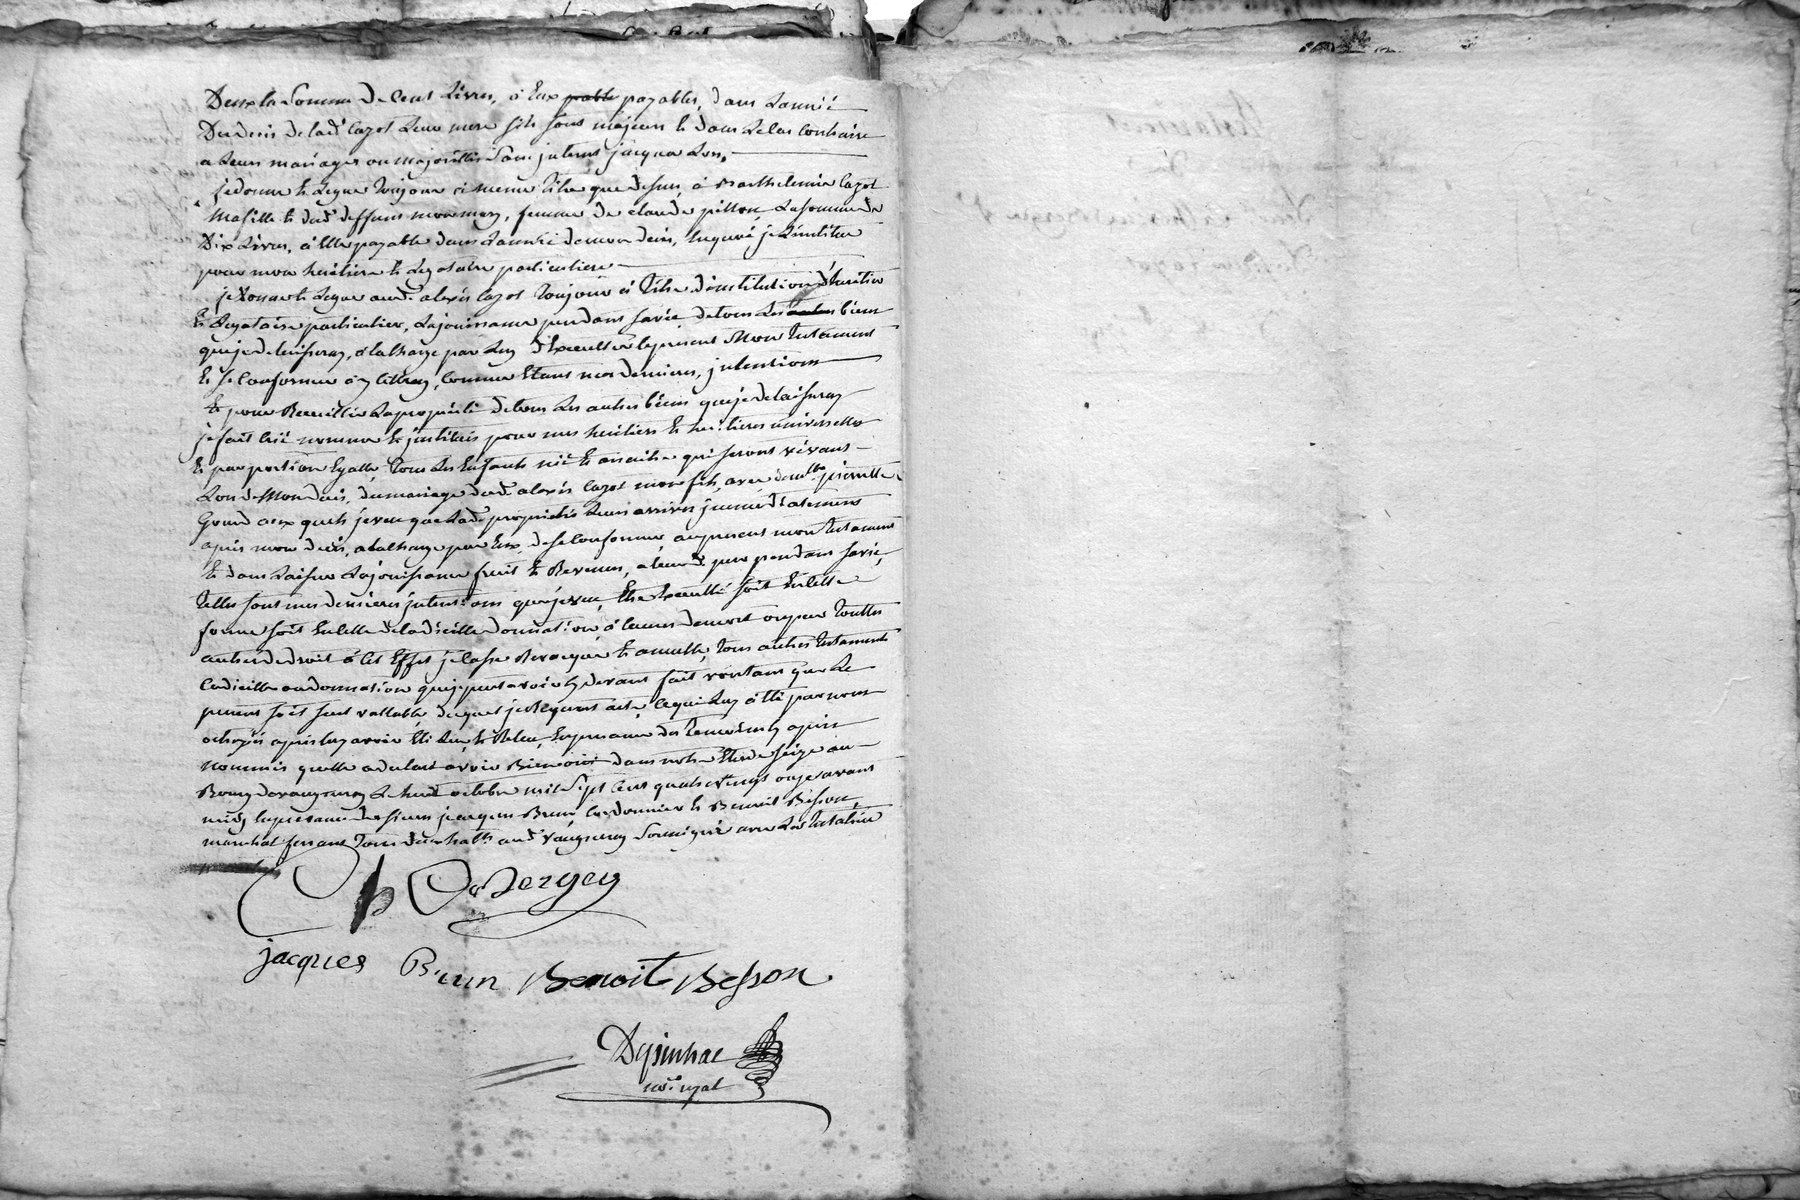 Deux la somme de cent Livres, à Eux payables, dans Lannéé
Du decés de lad.e Cazot Leur mere s'ils sont majeurs & dans Le Cas Contraire
a Leurs mariages ou majorittés sans interest jusqua Lors.
je donne & Legue toujour à meme titre que dessus à Barthelemie Cazot
Ma fille & dud. deffunt mon mary, femme de claude pitton, La somme de
Dix Livres, à Elle payable dans Lannéé de mon decés, en quoi je L'institue
pour mon heritiere & Legataire particuliere
je donne & Legue aud. alexis Cazot toujour à titre d'institution d'heritier
& Legataire particulier, La jouissance pendant sa vie de tous Les biens
que je delaisseray, à la charge par Luy d'Executter le present Mon testament
& se Conformer à y celluy, Comme Etant mes dernieres, intentions
& pour Recueillir La propriété de tous Les autres biens que je delaisseray
je fait Créé nomme & institues pour mes heritiers & heritieres universelles
& par portion Egalle, tous Les Enfants néé & a naitre qui seront vivans
Lors de Mon decés, du mariage dud. alexis Cazot mon fils, avec pierrette
Grand aux quels je veux que Lad. propriété Leurs arrives immediatement
après mon decés, a la charge par Eux, de se Conformer au present mon testament
& dans Laisser La jouissance fruit & Revenus, a leurd. pere pendant sa vie,
telles sont mes dernieres intentions que je veux, Etre Executté soit En cette
forme soit En celle de Codicille donnation à Cause de mort ou par touttes
autres de droit à Cet Effet je Casse Revocque & annulle, tous autres testaments
Codicille ou donnation que je peut avoir Cy devant fait voulant que Le
present soit seul vallable, duquel je Requiert acte, Ce qui Luy à Eté par nous
octroyé après Luy avoir Eté Lû, & Relu, En presence des temoins Cy après
nommés qu'elle a declaré avoir Bien oui dans notre Etude size au
Bourg de vaugneray Le huit octobre mil sept Cent quatrevingt onze avant
midy En presence des sieurs jacques Brun Cordonnier & Benoit Besson,
marechal ferrant tous deux hab.ts aud. vaugneray soussigné avec La testatrice
jacques Brun Benoit Besson
nore. royal